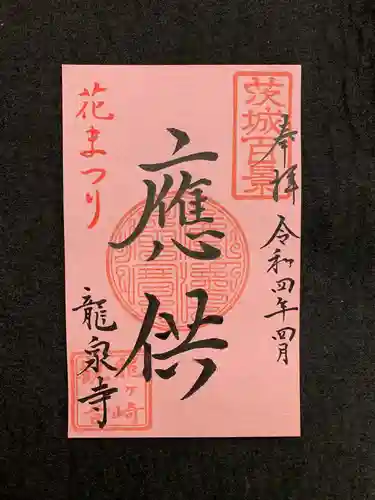 茨城百景
奉拝
令和四年四月
應供
花まつり
龍泉寺
龍ヶ崎